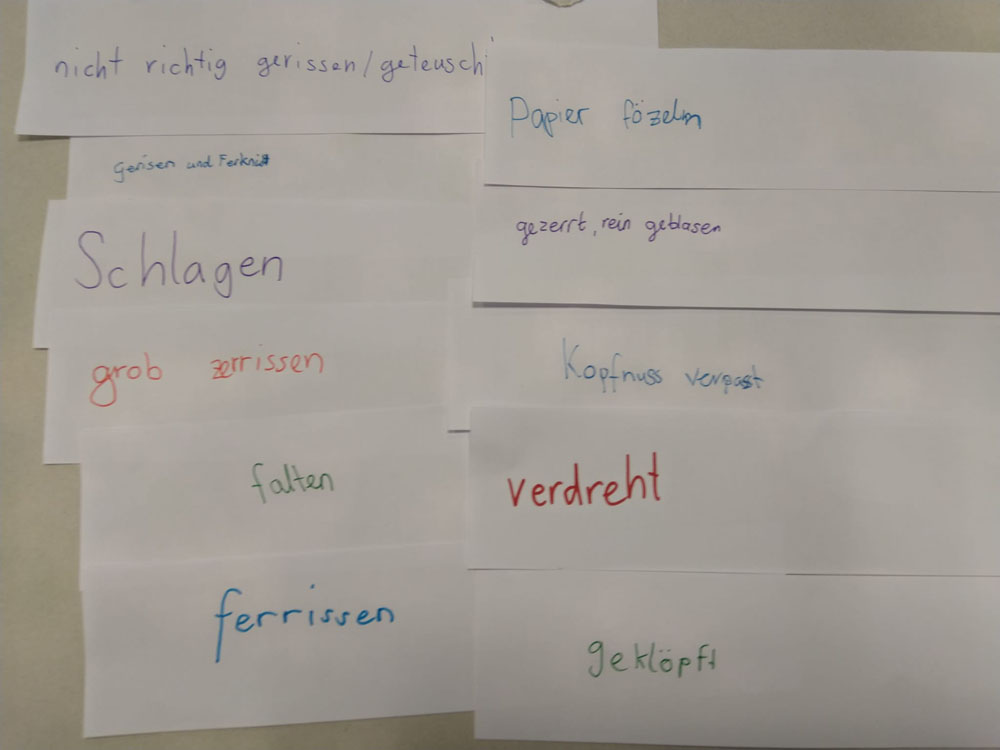 nicht richtig gerissen/geteusch
Gerisen und Ferkni
Schlagen
grob zerrissen
falten
ferrissen
Papier fözeln
gezerrt, rein geblasen
Kopfnuss verpast
verdreht
geklöpft